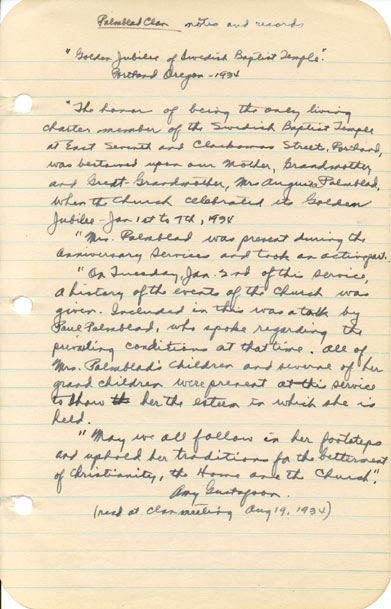 Palmblad Clan notes and records
"Golden Jubilee of Swedish Baptist Temple".
Portland Oregon - 1934
"The honor of being the only living
charter member of the Swedish Baptist Temple
at East Seventh and Clackamas Street, Portland,
was bestowed upon our Mother, Grandmother
and Great-Grandmother, Mrs Palmblad,
when the church celebrated its Golden
Jubilee - Jan 1st to 7th, 1934
"Mrs. Palmblad was present during the
anniversary services and took an active part.
"On Tuesday, Jan. 2nd of this service,
a history of the events of the Church was
given. Included in this was a talk by
Paul Palmblad, who spoke regarding the
conditions at that time. All of
Mrs. Palmblad's children and several of her
grand children were present at this service
to show her the esteem in which she is
held.
"May we all follow in her footsteps
and uphold her traditions for the betterment
of Christianity, the Home and the Church".
Amy Gustafson.
(read at clan meeting Aug 19, 1934)